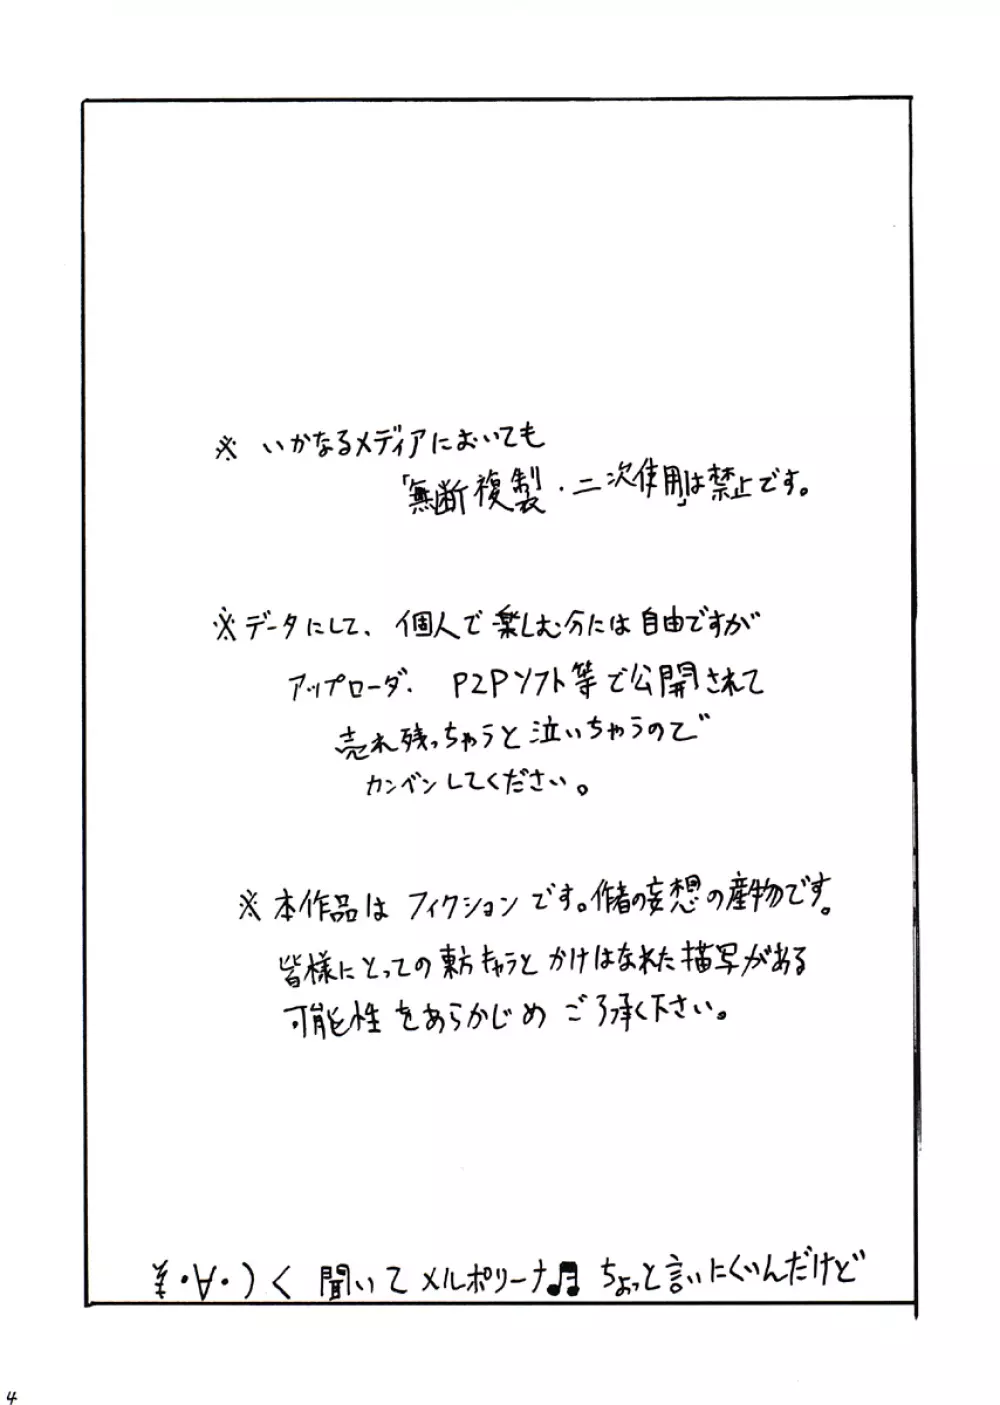 ※ いかなるメディアにおいても
「無断複製・二次使用」は禁止です。
※データにして、個人で楽しむ分には自由ですが
アップローダ、P2Pソフト等で公開されて
売れ残っちゃうと泣いちゃうので
カンベンしてください。
※本作品はフィクションです。作者の妄想の産物です。
皆様にとっての東方キャラとかけはなれた描写がある
可能性をあらかじめご了承く下さい。
・∀・)く 聞いてメルポリーナ♫ ちょっと言いにくいんだけど
4